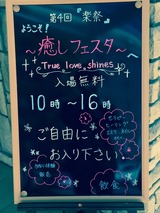 第4回 『楽祭』
ようこそ!
～癒しフェスタ～
True love, shines
入場無料
10時～16時
ご自由に
お入り下さい。
飲食